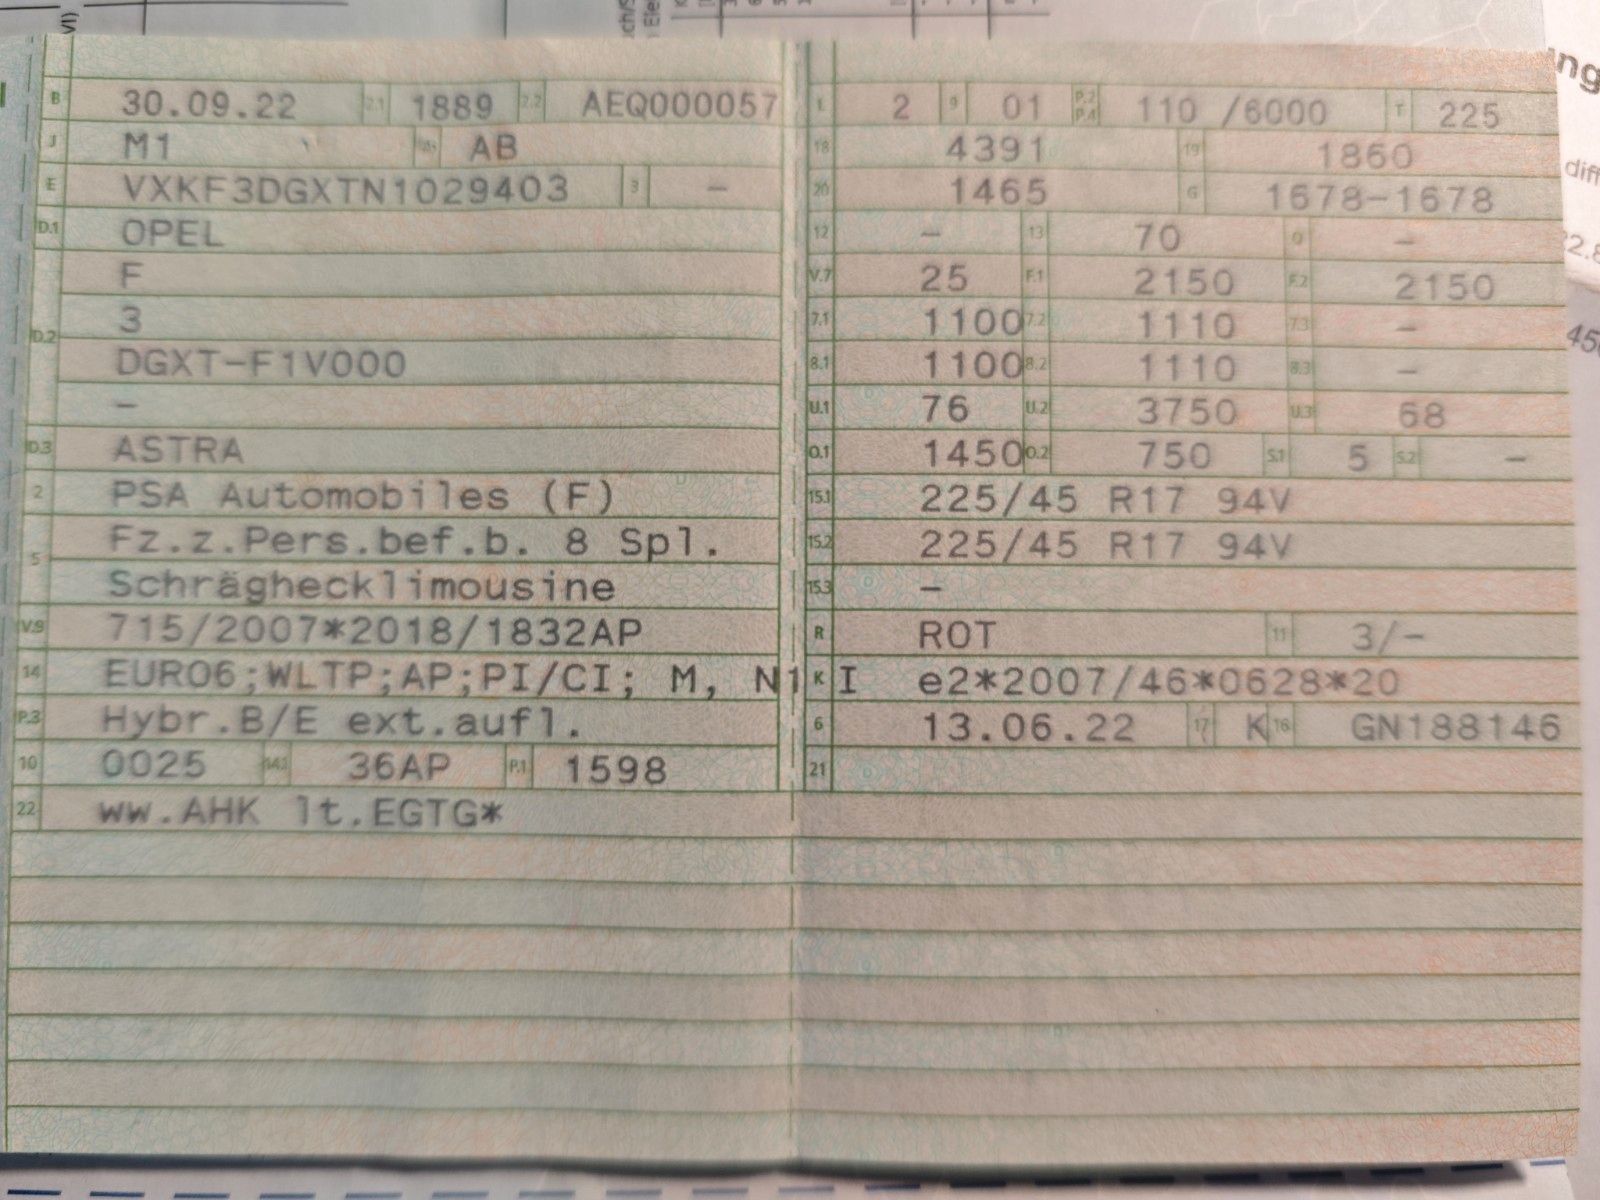 B 30.09.22 2.1 1889 2.2 AEQ000057
J M1 AB
E VXKF3DGXTN1029403 3 –
D.1 OPEL
F
D.2 3
DGXT-F1V000
–
D.3 ASTRA
2 PSA Automobiles (F)
5 Fz.z.Pers.bef.b. 8 Spl.
Schräghecklimousine
V.9 715/2007*2018/1832AP
14 EURO6;WLTP;AP;PI/CI; M, N1 I
P.3 Hybr.B/E ext.aufl.
10 0025 14.1 36AP P.1 1598
22 ww.AHK lt.EGTG*
L 2 9 01 P.2 P.4 110 /6000 T 225
18 4391 19 1860
20 1465 G 1678-1678
12 – 13 70 Q –
V.7 25 F.1 2150 F.2 2150
7.1 1100 7.2 1110 7.3 –
8.1 1100 8.2 1110 8.3 –
U.1 76 U.2 3750 U.3 68
O.1 1450 O.2 750 S.1 5 S.2 –
15.1 225/45 R17 94V
15.2 225/45 R17 94V
15.3 –
R ROT 11 3/-
K e2*2007/46*0628*20
6 13.06.22 17 K 16 GN188146
21